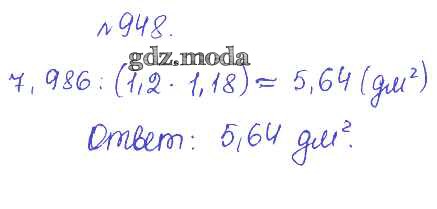 №948.
gdz.moda
7,986 : (1,2 · 1,18) = 5,64 (дм²)
Ответ: 5,64 дм².